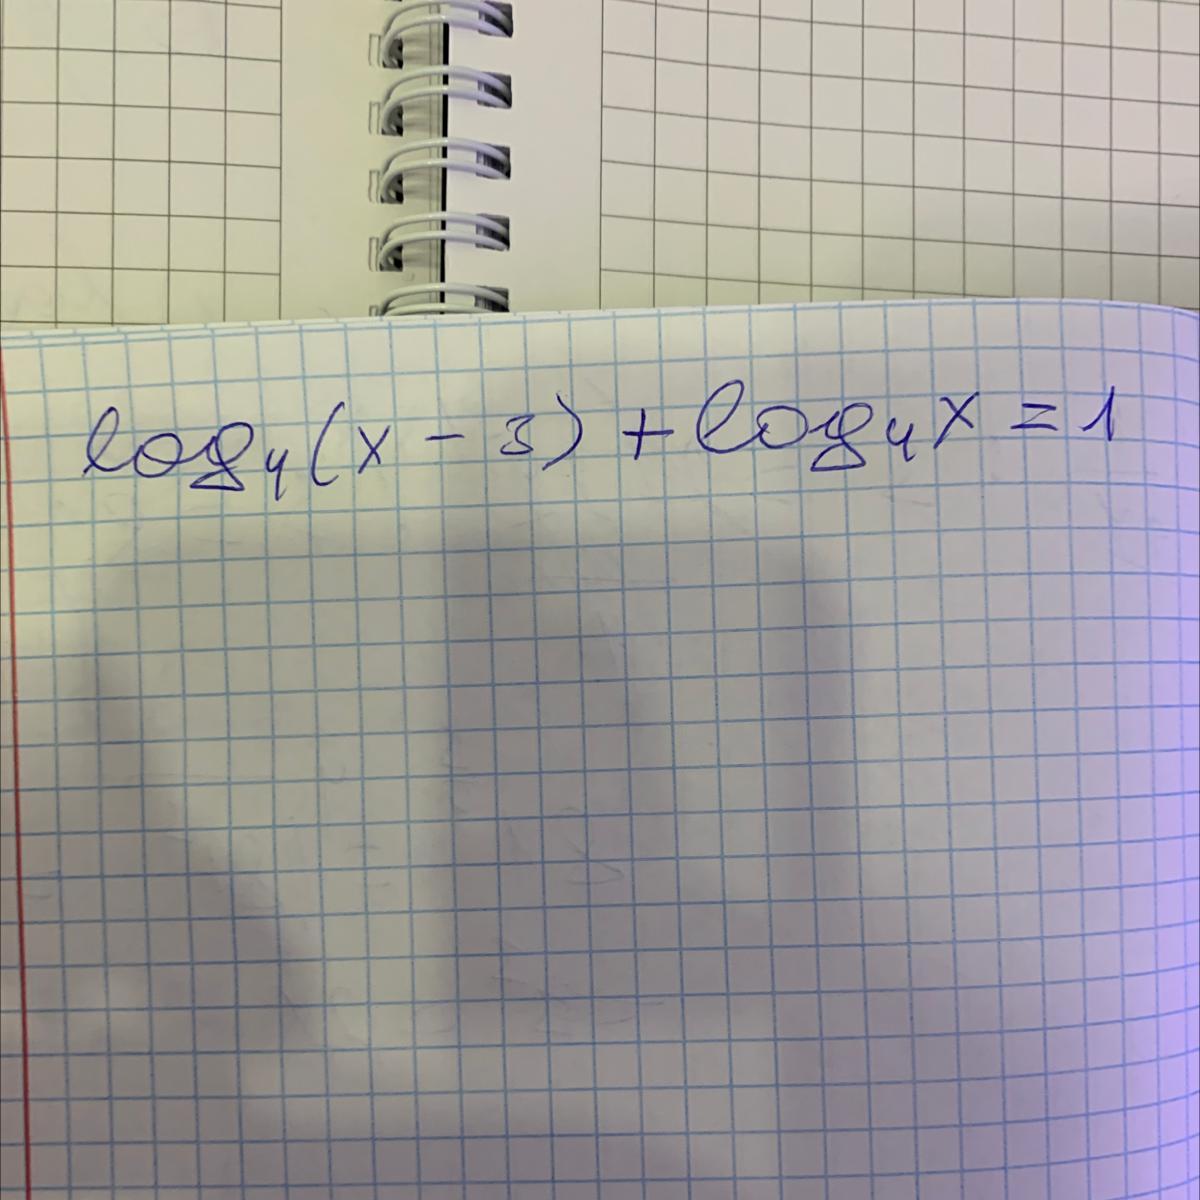 log₄(x - 3) + log₄x = 1